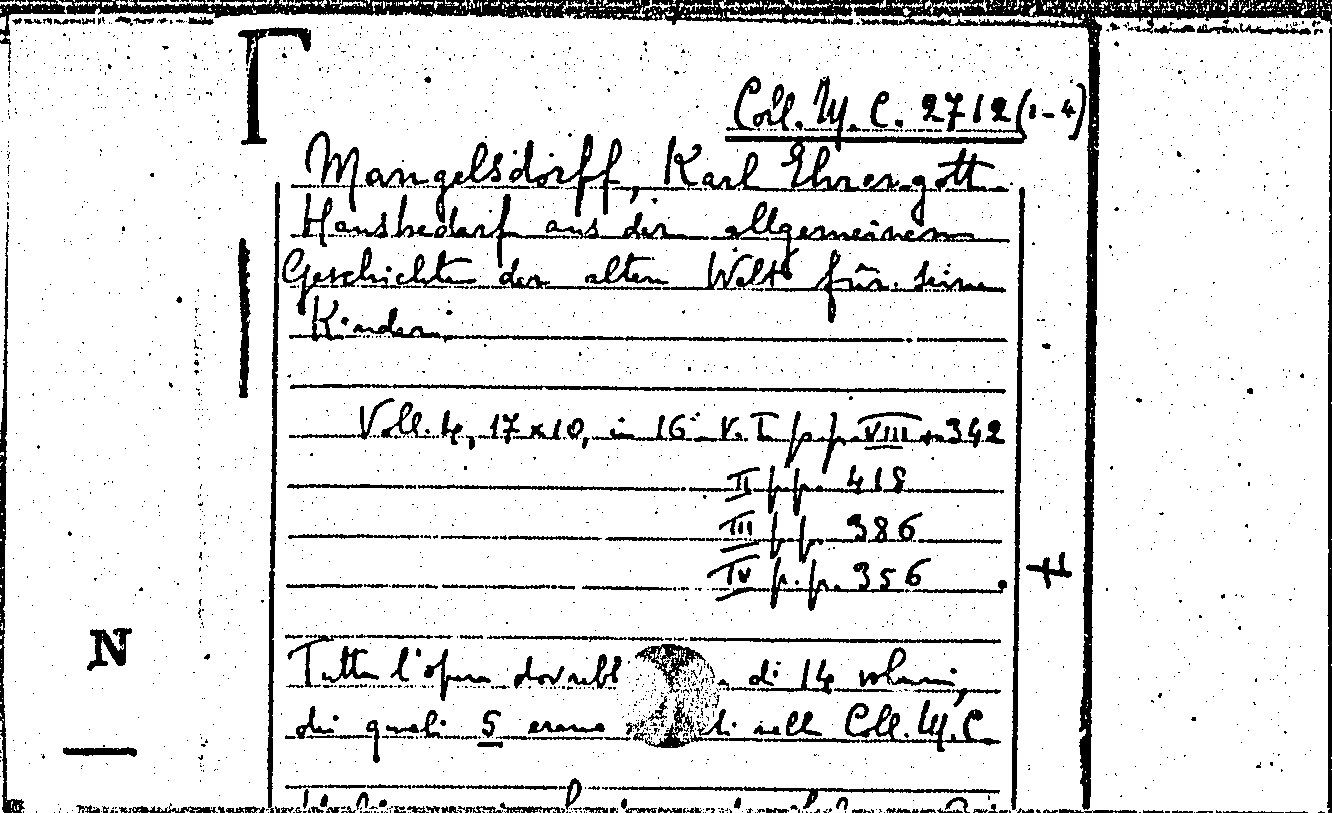 Coll. M. C. 2712 (1-4)
Mangelsdorff, Karl Ehrengott
Hausbedarf aus der allgemeinen
Geschichte der alten Welt für seine
Kinder.
Voll. 4, 17 x 10, in 16° V. I p.p. VIII + 342
II p.p. 418
III p.p. 386
IV p.p. 356.
N
Tutta l'opera di 14 volumi,
dei quali 5 erano nella Coll. M. C.